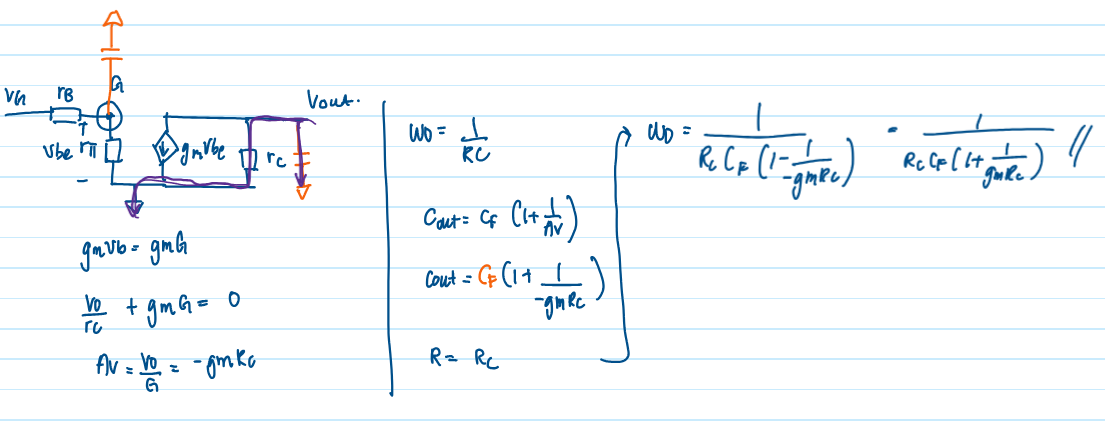 G
VG rB Vout.
+
Vbe rπ gmVbe rc
-
gmVb = gmG
Vo/rc + gmG = 0
AV = Vo/G = -gmRc
ωo = 1/RC
Cout = CF (1+1/AV)
Cout = CF (1+1/-gmRc)
R = Rc
ωo = 1/(Rc CF (1-1/-gmRc)) = 1/(Rc CF (1+1/gmRc)) //